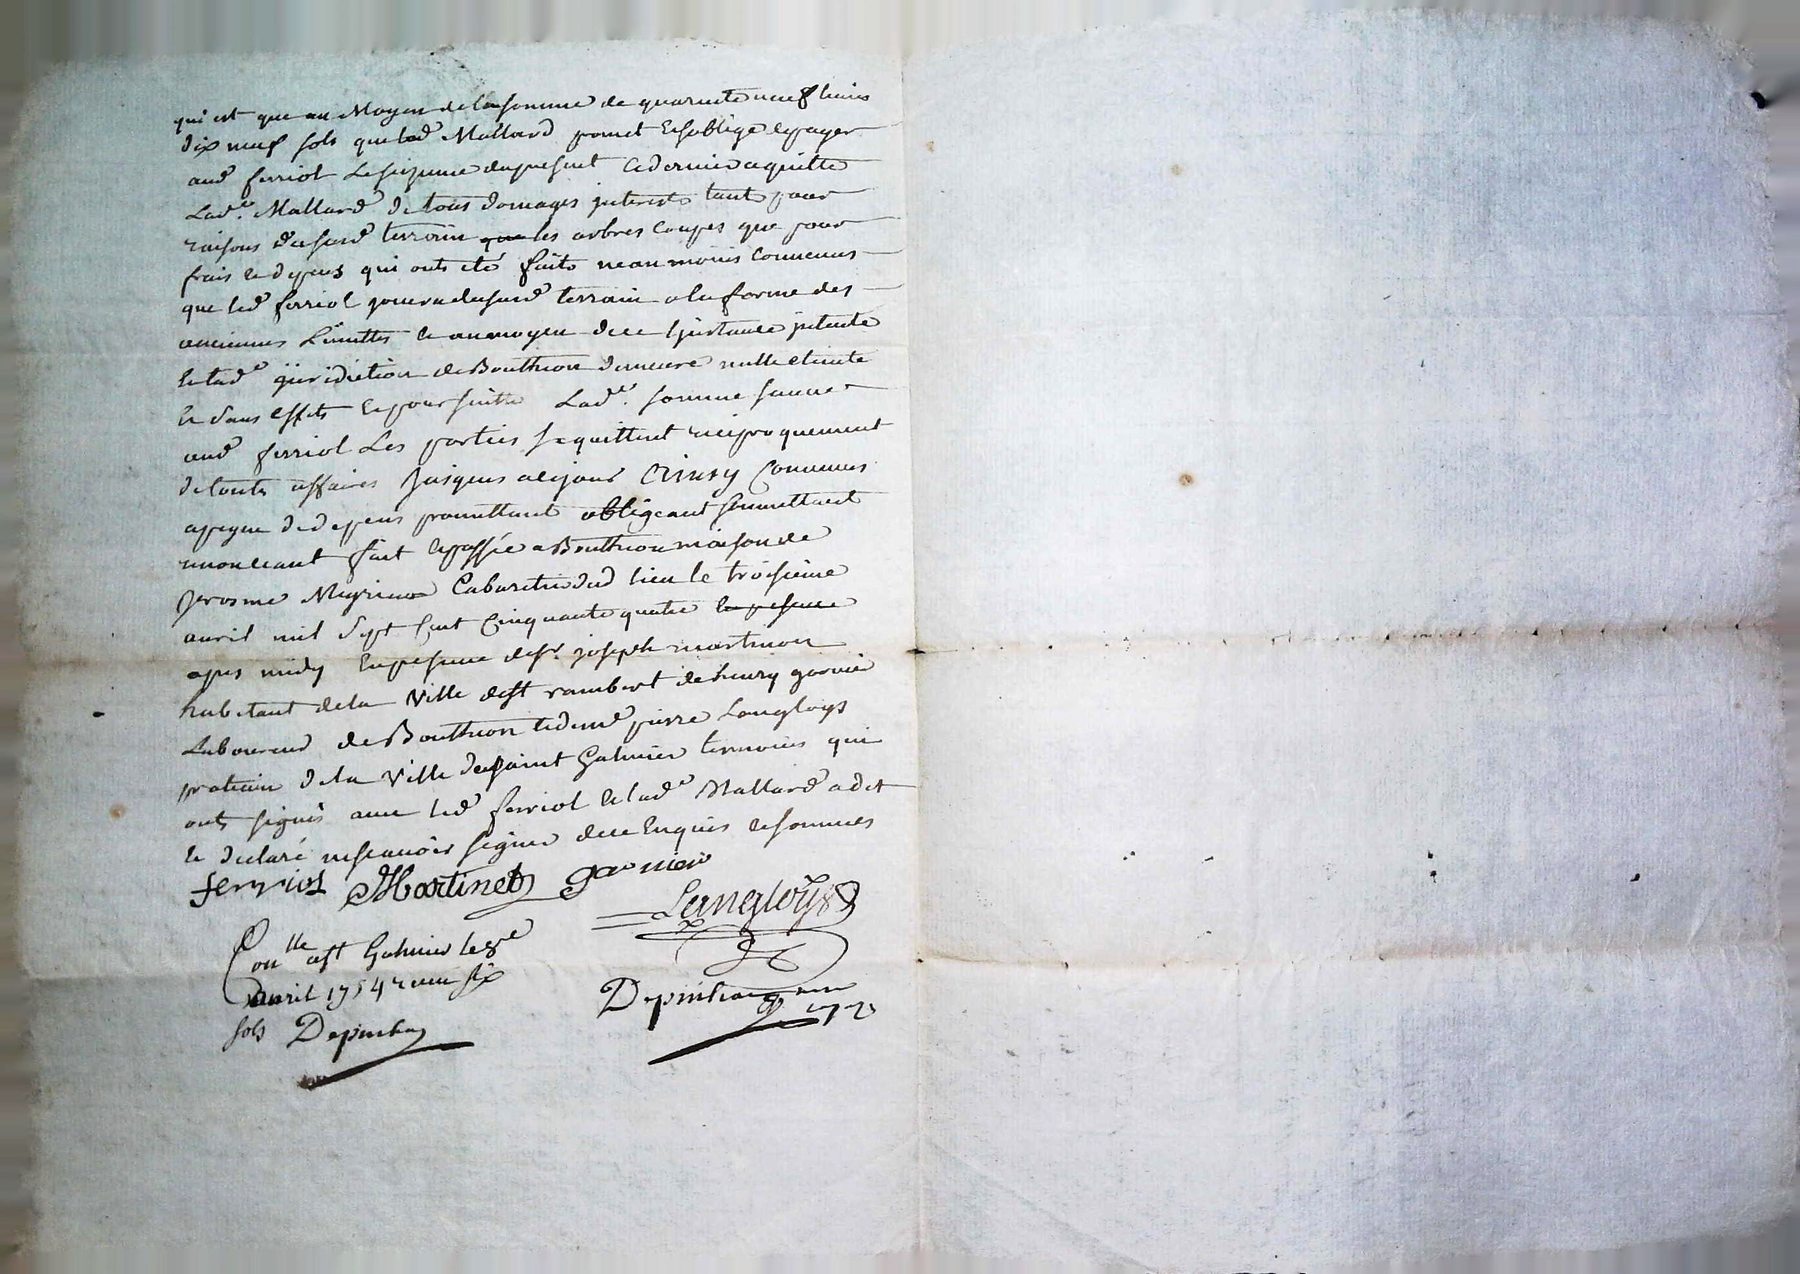 qui est que au Moyen de la somme de quarente neuf livres
dix neuf sols que lad Mallard promet et soblige de payer
aud ferriol Ce dernier a quitté
Lad.e Mallard de tous domages interests tant pour
raisons dususd terrain que les arbres coupes que pour
frais et depens qui onts eté faits neanmoins convenus
que led ferriol jouira dususd terrain a la forme des
anciennes Limittes et aumoyen de ce Linstance intente
en lad.e juridiction de Boutheon demeure nulle eteinte
et sans effets et poursuitte Lad.e somme
aud ferriol Les parties se quittent reciproquement
de touts affaires Jusques a ce jour Ainsy Convenus
a peyne de depens promettant obligeant soumettant
renonceant fait et passée a Boutheon maison de
Jerosme Cabaretier dud lieu le troisieme
avril mil sept cent Cinquante quatre en presence
apres midy en presence de sr. joseph martinon
habitant de la Ville de st rambert de henry garnier
Laboureur de Boutheon et de me pierre Langloys
praticien de la Ville de saint Galmier temoins qui
onts signés avec led ferriol et lad.e Mallard a dit
et declaré ne scavoir signer de ce Enquis et sommés
ferriol Martinet garnier
Langloys
Con.lle a st Galmier le
avril 1754 receu six
sols Depinhac
Depinhac